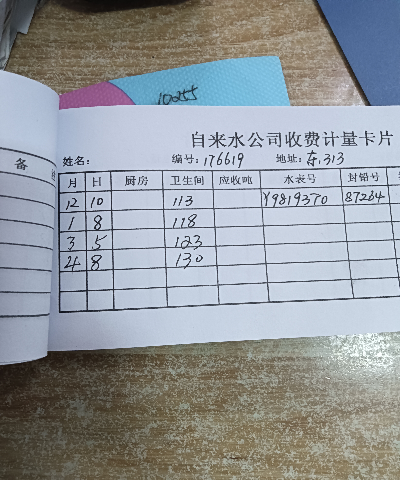 10255
自来水公司收费计量卡片
姓名： 编号：176619 地址：东.313
备
月 日 厨房 卫生间 应收吨 水表号 封铅号
12 10 113 Y9819370 87264
1 8 118
3 5 123
4 8 130